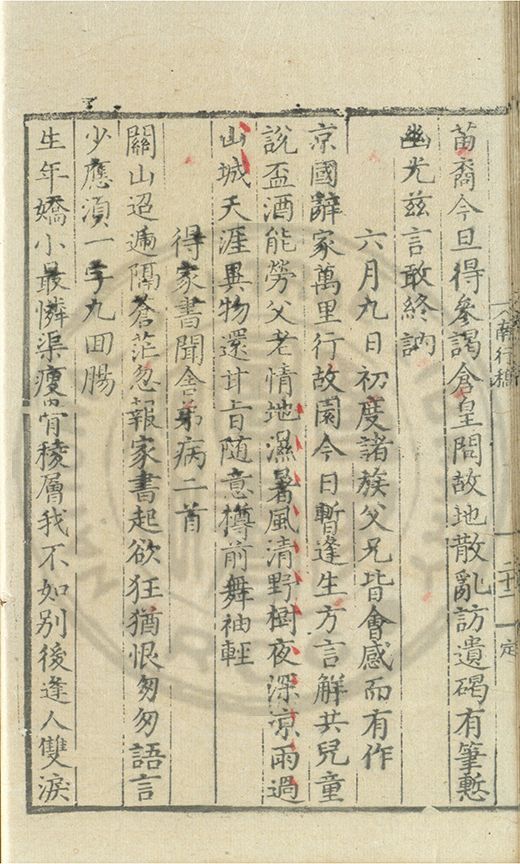 南行稿
二十二
定
苗裔今旦得參謁倉皇問故地散亂訪遺碣有筆慙
幽光茲言敢終訥
六月九日初度諸族父兄皆會感而有作
京國辭家萬里行故園今日暫逢生方言解共兒童
說盃酒能勞父老情地濕暑風清野樹夜深涼雨過
山城天涯異物還甘旨随意樽前舞袖輕
得家書聞舍弟病二首
關山迢遞隔蒼茫忽報家書起欲狂猶恨匆匆語言
少應湏一字九回腸
生年嬌小最憐渠瘦骨稜層我不如別後逢人雙淚